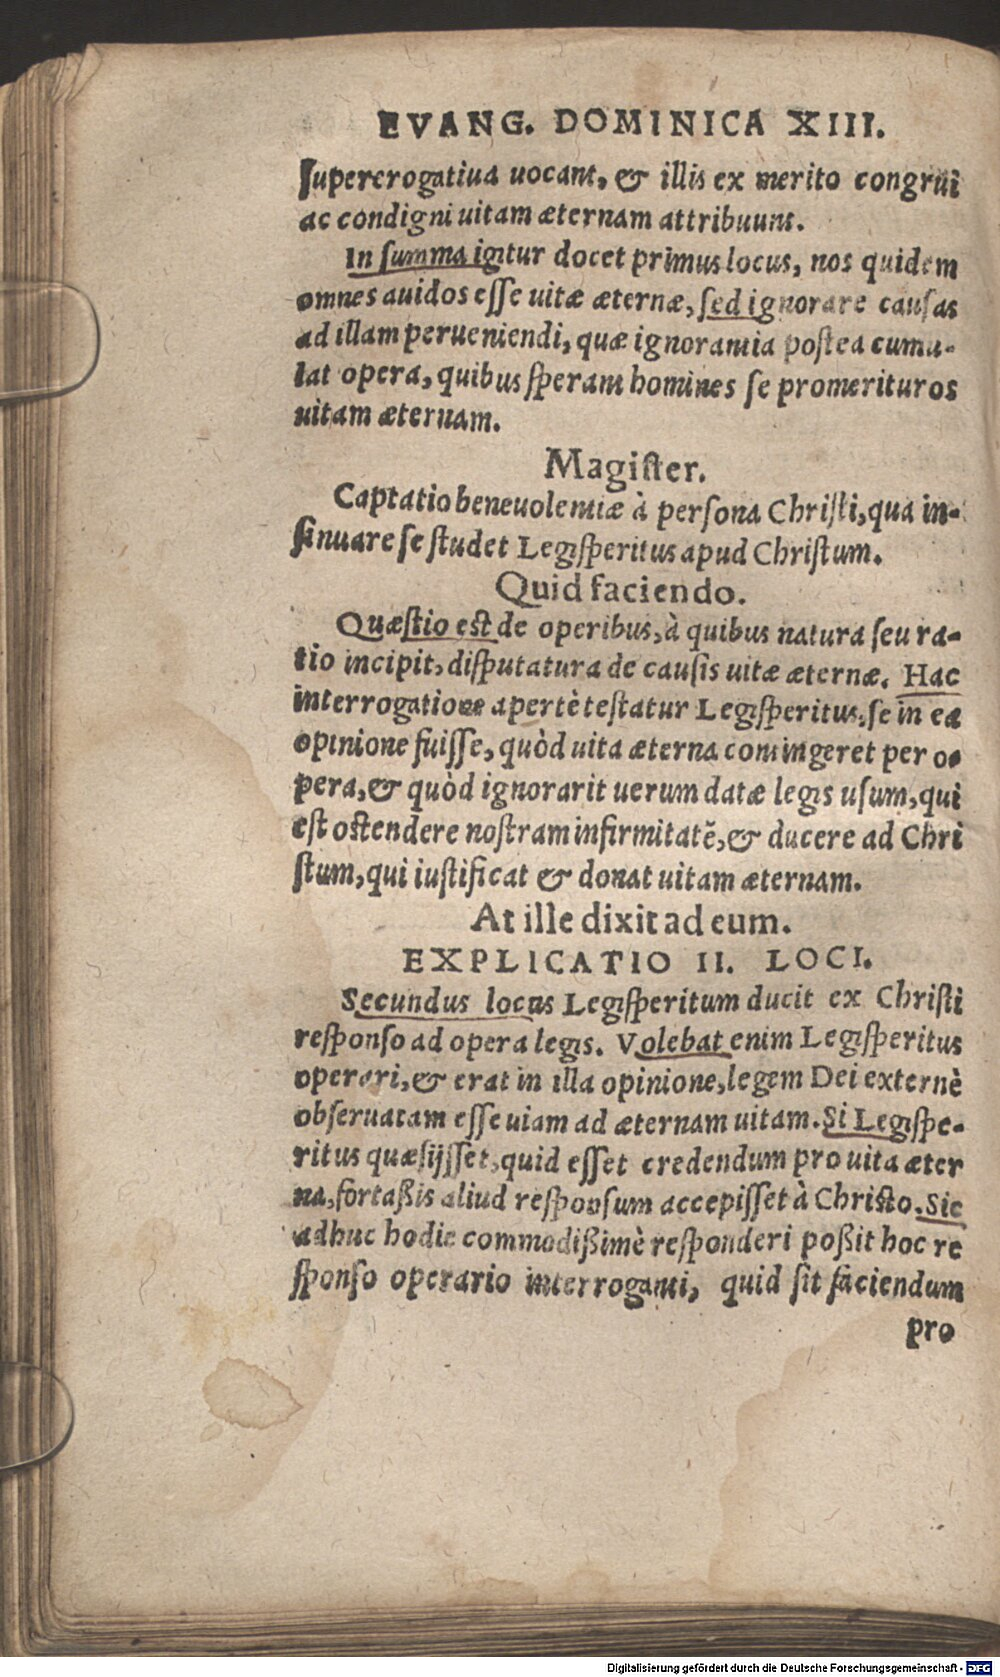 EVANG. DOMINICA XIII.
ſupererogatiua uocant, & illis ex merito congrui
ac condigni uitam æternam attribuunt.
In ſumma igitur docet primus locus, nos quidem
omnes auidos eſſe uitæ æternæ, ſed ignorare cauſas
ad illam perueniendi, quæ ignorantia poſtea cumu-
lat opera, quibus ſperant homines ſe promerituros
uitam æternam.
Magiſter.
Captatio beneuolentiæ à perſona Chriſti, qua in-
ſinuare ſe ſtudet Legiſperitus apud Chriſtum.
Quid faciendo.
Quæſtio est de operibus, à quibus natura ſeu ra-
tio incipit, diſputatura de cauſis uitæ æternæ. Hac
interrogatione apertè teſtatur Legiſperitus, ſe in ea
opinione fuiſſe, quòd uita æterna contingeret per o-
pera, & quòd ignorarit uerum datæ legis uſum, qui
est oſtendere noſtram infirmitatē, & ducere ad Chri
ſtum, qui iuſtificat & donat uitam æternam.
At ille dixit ad eum.
EXPLICATIO II. LOCI.
Secundus locus Legiſperitum ducit ex Chriſti
reſponſo ad opera legis. Volebat enim Legiſperitus
operari, & erat in illa opinione, legem Dei externè
obſeruatam eſſe uiam ad æternam uitam. Si Legiſpe-
ritus quæſijſſet, quid eſſet credendum pro uita æter
na, fortaßis aliud reſponſum accepiſſet à Chriſto. Sic
adhuc hodie commodißimè reſponderi poßit hoc re
ſponſo operario interroganti, quid ſit faciendum
pro
Digitalisierung gefördert durch die Deutsche Forschungsgemeinschaft - DFG